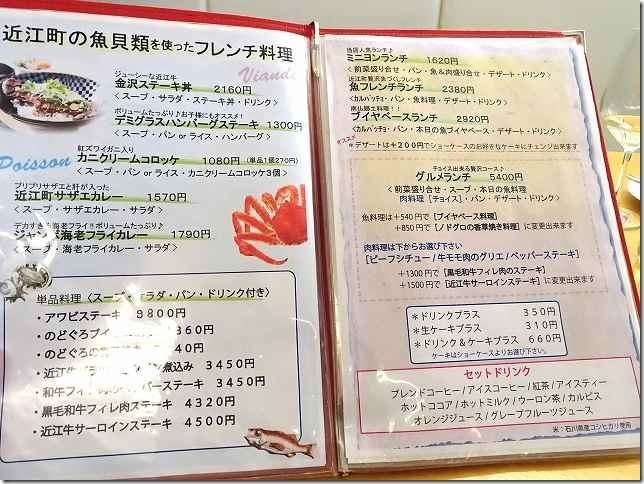 近江町の魚貝類を使ったフレンチ料理
Viande
ジューシーな近江牛
金沢ステーキ丼 2160円
<スープ・サラダ・ステーキ丼・ドリンク>
ボリュームたっぷり♪お子様にもオススメ!!
デミグラスハンバーグステーキ 1300円
<スープ・パン or ライス・ハンバーグ>
Poisson
紅ズワイガニ入り
カニクリームコロッケ 1080円(単品1個270円)
<スープ・パン or ライス・カニクリームコロッケ3個>
プリプリサザエと肝が入った
近江町サザエカレー 1570円
<スープ・サザエカレー・サラダ>
デカすぎる海老フライ!!ボリュームたっぷり♪
ジャンボ海老フライカレー 1790円
<スープ・海老フライカレー・サラダ>
単品料理<スープ・サラダ・パン・ドリンク付き>
・アワビステーキ 9800円
・のどぐろブイ 360円
・のどぐろの 40円
・近江牛 煮込み 3450円
・和牛フィレ肉のペッパーステーキ 3450円
・黒毛和牛フィレ肉のステーキ 4320円
・近江牛サーロインステーキ 4500円
当店人気ランチ♪
ミニヨンランチ 1620円
<前菜盛り合せ・パン・魚&肉盛り合せ・デザート・ドリンク>
近江町贅沢魚づくしフレンチ
魚フレンチランチ 2380円
<カルパッチョ・パン・魚料理・デザート・ドリンク>
南仏郷土料理!!
ブイヤベースランチ 2920円
<カルパッチョ・パン・本日の魚ブイヤベース・デザート・ドリンク>
オススメ
*デザートは+200円でショーケースのお好きなケーキにチェンジ出来ます
チョイス出来る贅沢コース♪
グルメランチ 5400円
<前菜盛り合せ・スープ・本日の魚料理
肉料理[チョイス]・パン・デザート・ドリンク>
魚料理は+540円で[ブイヤベース料理]
+850円で[ノドグロの香草焼き料理]に変更出来ます
肉料理は下からお選び下さい
[ビーフシチュー/牛モモ肉のグリエ/ペッパーステーキ]
+1300円で[黒毛和牛フィレ肉のステーキ]
+1500円で[近江牛サーロインステーキ]に変更出来ます
*ドリンクプラス 350円
*生ケーキプラス 310円
*ドリンク&ケーキプラス 660円
ケーキはショーケースよりお選び下さい。
セットドリンク
ブレンドコーヒー/アイスコーヒー/紅茶/アイスティー
ホットココア/ホットミルク/ウーロン茶/カルピス
オレンジジュース/グレープフルーツジュース
米:石川県産コシヒカリ使用